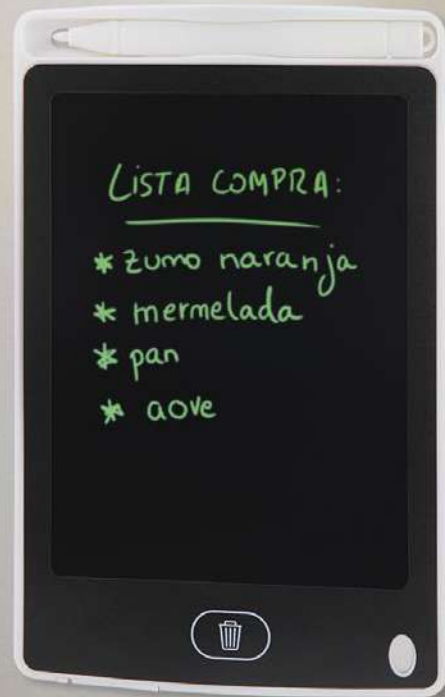 LISTA COMPRA:
* zumo naranja
* mermelada
* pan
* aove